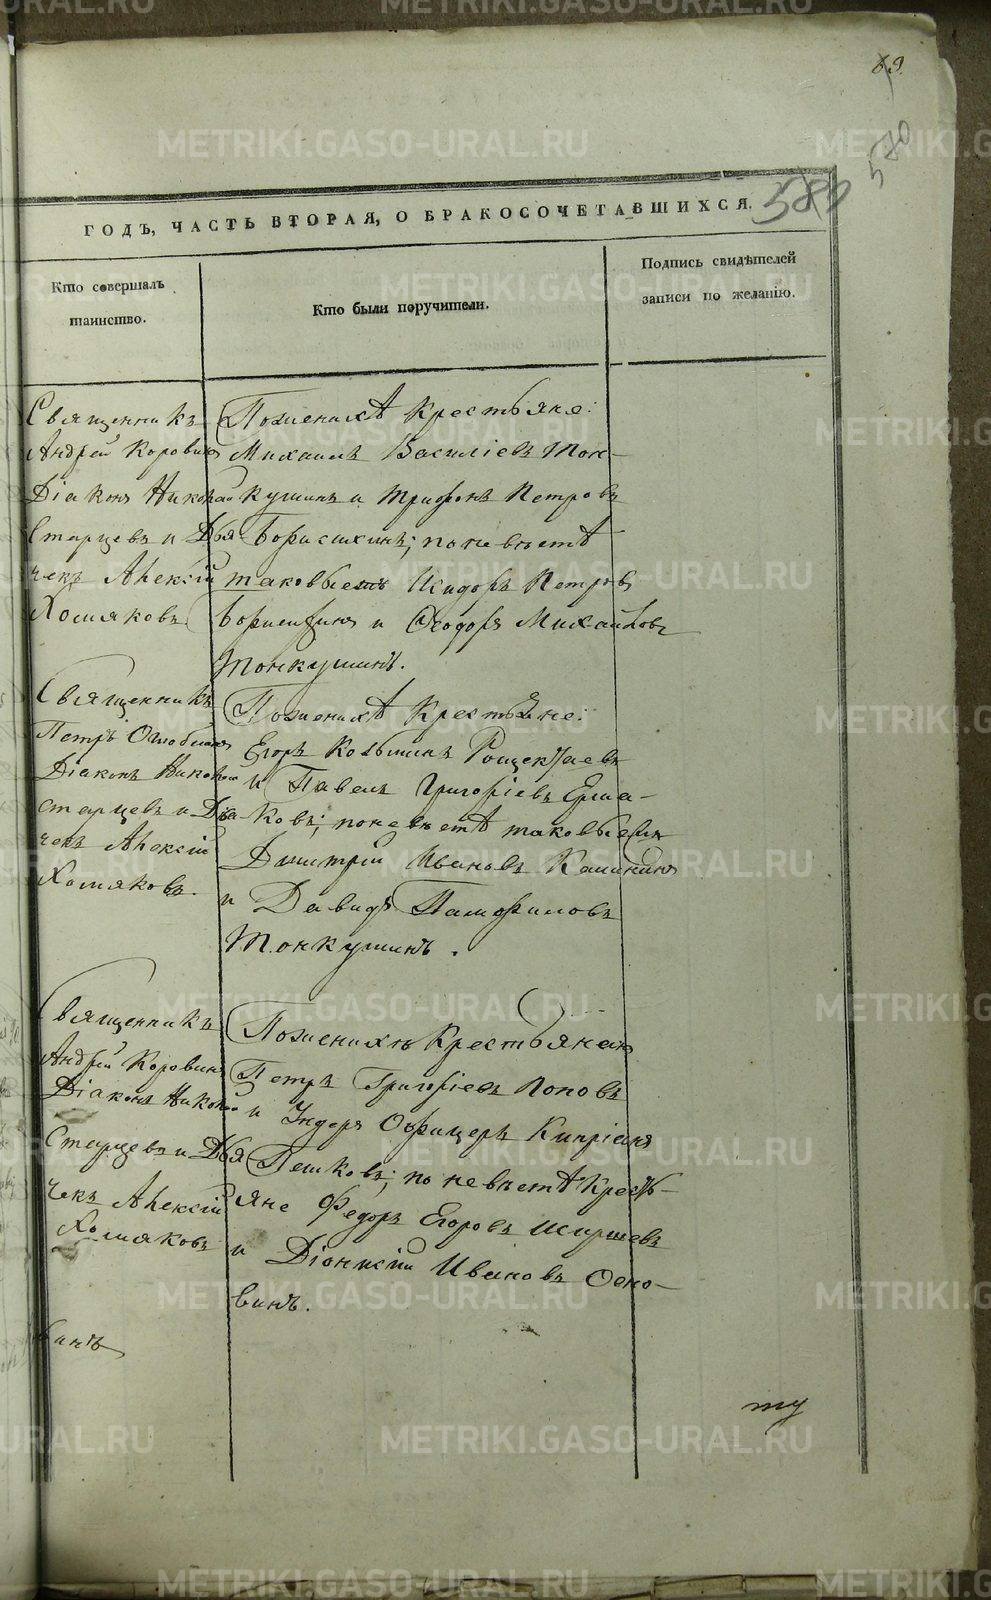 69.
580
580
ГОДЪ, ЧАСТЬ ВТОРАЯ, О БРАКОСОЧЕТАВШИХСЯ.
Кто совершалъ
таинство.
Кто были поручители.
Подпись свидѣтелей
записи по желанію.
Священникъ
Андрей Коровинъ
Діаконъ Николай
Старцевъ и Дья
чекъ Алексій
Хомяковъ
По женихѣ Крестьяне:
Михаилъ Василіевъ Тон-
кушинъ и Трифонъ Петровъ
Борисихинъ; по невѣстѣ
таковыежъ Исидоръ Петровъ
Борисихинъ и Ѳеодоръ Михайловъ
Тонкушинъ.
Священникъ
Петръ
Діаконъ Николай
Старцевъ и Дья-
чекъ Алексій
Хомяковъ.
По женихѣ Крестьяне:
Егоръ Козьминъ
и Павелъ Григорьевъ Ерма-
ковъ; по невѣстѣ таковыежъ
Дмитрій Ивановъ Калинкинъ
и Давидъ Памфиловъ
Тонкушинъ.
Священникъ
Андрей Коровинъ
Діаконъ Николай
Старцевъ и Дья
чекъ Алексій
Хомяковъ
По женихѣ Крестьянинъ
Петръ Григорьевъ Поповъ
и Ундеръ Офицеръ Кипріянъ
Пешковъ; по невѣстѣ Кресть-
яне Федоръ Егоровъ
и Діонисій Ивановъ Осно-
винъ.
винъ
ту
METRIKI.GASO-URAL.RU